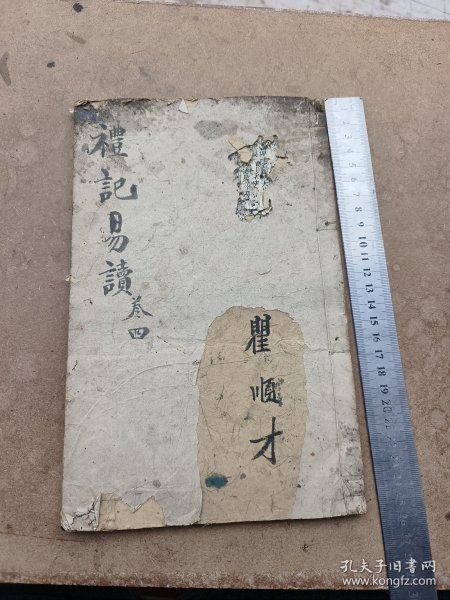 禮記易讀 卷四
瞿順才
1 2 3 4 5 6 7 8 9 10 11 12 13 14 15 16 17 18 19 20
孔夫子旧书网
www.kongfz.com